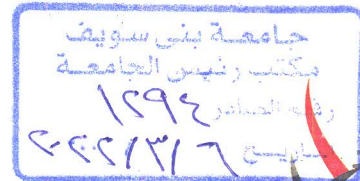 جامعة بني سويف
مكتب رئيس الجامعة
رقم الصادر ١٢٩٤
تاريخ ٢٠٢٢/٣/٦